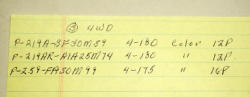 ③ 4WD
P-219A-SF30M99 4-180 Color 12P
P-219AR-AIA25M74 4-130 " 12P
P-259-FA30M99 4-175 " 16P